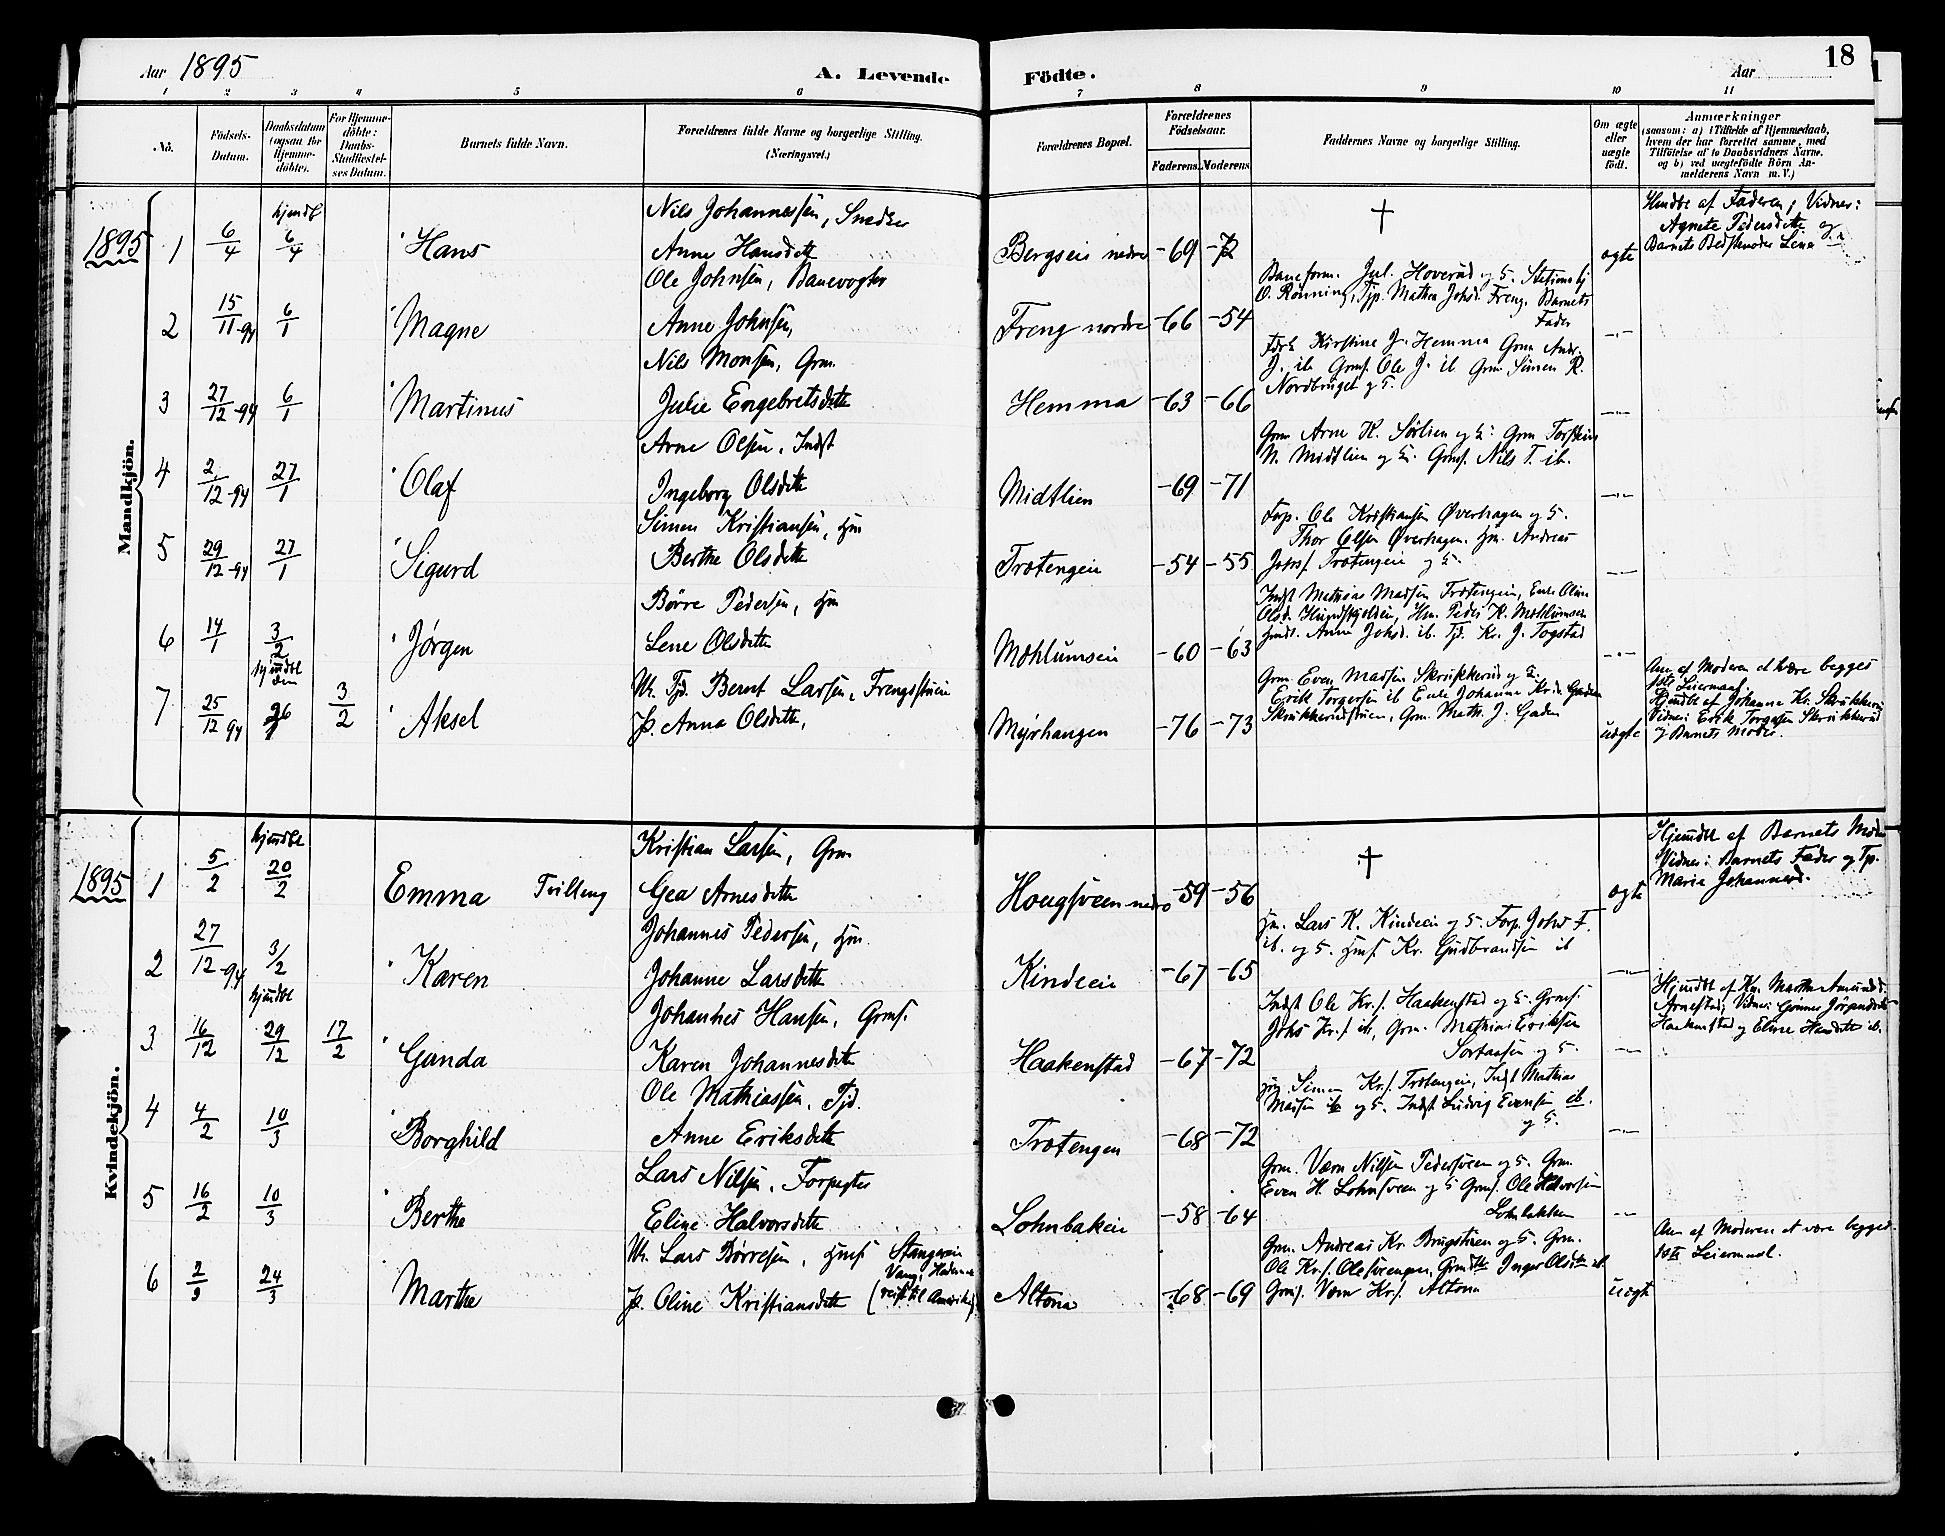 Aar 1895
A. Levende
Fødte.
Aar
18
1 2 3 4 5 6 7 8 9 10 11
No.
Fødsels-Datum.
Daabsdatum (ogsaa for Hjemme-døbte).
For Hjemme-døbte: Daabs-Stadfæstel-ses Datum.
Barnets fulde Navn.
Forældrenes fulde Navne og borgerlige Stilling. (Næringsvei.)
Forældrenes Bopæl.
Forældrenes Fødselsaar.
Faderens. Moderens.
Faddernes Navne og borgerlige Stilling.
Om ægte eller uægte født.
Anmærkninger
(saasom: a) i Tilfælde af Hjemmedaab, hvem der har forrettet samme, med Tilføielse af to Daabsvidners Navne, og b) ved uægtefødte Børn An-melderens Navn m. V.)
Mandkjøn.
1895 1 6/4 hjemdbt 6/4 Hans
Nils Johannessen, Snedker
Anne Hansdtt
Bergseie nedre -69 -72 † ægte
Hmdbt af Faderen, Vidner:
Agnete Pedersdtte og
Barnets Bedstemoder Lina
2 15/11-94 6/1 Magne
Ole Johnsen, Banevogter
Anne Johnsen,
Freng nordre -66 -54
Baneform. Jul. Hoverud og H. Stationsbtj
O. Rønning, Tjp. Mathea Johsd. Freng, Barnets
Fader
3 27/12-94 6/1 Martinus
Nils Monsen, Grm.
Julie Engebretsdtte
Hemma -63 -66
Kirstine J. Hemma Grm Andr.
J. ib Grmf. Ole J. ib Grm Simen K.
Nordbruget og H.
4 2/12-94 27/1 Olaf
Arne Olsen, Indst
Ingeborg Olsdtte
Midtlien -69 -71
Grm Arne K. Sørlien og H. Grm Torstein
N. Midtlien og H. Grmf. Nils T. ib.
5 29/12-94 27/1 Sigurd
Simen Kristiansen, Hm
Berthe Olsdtte
Trøtengeie -54 -55
Forp. Ole Kristiansen Øverhagen og H.
Thor Olsen Øverhagen. Hm. Andreas
Johsf. Trøtengeie og H.
6 14/1 3/2 Jørgen
Børre Pedersen, Hm
Lene Olsdtte
Mæhlumseie -60 -63
Indst Mathias Madsen Trøtengeie, Enke Oline
Olsd., Hm. Peder K. Mæhlumseie
Anne Johsd. ib. Tjd. Kr. J. Togstad
7 25/12 94 hjemdbt 3/2 Aksel
Uk. Tjd. Bernt Larsen, Frengstuen
P. Anna Olsdtte,
Myrhaugen -76 -73
Grm Even Madsen Skrukkerud og H.
Erik Torgersen ib Enke Johanne Kr.d. Gaden
Skrukkerudstuen, Grm. Math. J. Gaden
uægte
Anm. af Moderen at være begges
1ste Leiermaal.
Hjemdbt af Johanne Kr. Skrukkerud
Vidner: Erik Torgersen Skrukkerud
og Barnets Moder.
Kvindekjøn.
1895 1 5/2 hjemdbt 20/2 Emma Tvilling
Kristian Larsen, Grm
Gea Arnesdtte
Hougsveen nedre -59 -56 † ægte
Hjemdbt af Barnets Moder
Vidner: Barnets Fader og Tp.
Marie Johannesd.
2 27/12-94 3/2 Karen
Johannes Pedersen, Hm.
Johanne Larsdtte
Kindeeie -67 -65
Hm. Lars K. Kindeeie og H. Forp. Johs F.
ib. og H. Hmf. Kr. Gudbrandsen ib
3 16/12 hjemdbt 29/12 17/2 Gunda
Johannes Hansen, Grmf.
Karen Johannesdtte
Haakenstad -67 -72
Indst Ole Kr.f. Haakenstad og H. Grmf.
Johs Kr.f. ib, Grm. Mathias Eriksen
og H.
Hjemdbt af Kn. Marthe Amundsd.
Arnestad, Vidner: Gunner Jørgensdtte
Haakenstad og Eline Hansdtte ib.
4 4/2 10/3 Borghild
Ole Mathiassen, Tjd.
Anne Eriksdtte
Trøtengen -68 -72
Simen Kr.f. Trøtengeie, Indst Mathias
Madsen ib og H. Indst Ludvig Evensen ib.
og H.
5 16/2 10/3 Berthe
Lars Nilsen, Forpagter
Eline Halvorsdtte
Lohnbakeie -58 -64
Grm. Nilsen Pedersveen og H. Grm.
Even H. Lohnsveen og H Grmf. Ole Halvorsen
Lohnbakken
6 2/3 24/3 Marthe
Uk. Lars Børresen, Hmf. Stangeeie
Vang, Hedem.
P. Oline Kristiansdtte (reist til Amerika)
Altona -68 -69
Grm. Andreas Kr. Brugstuen og H. Grm.
Ole Kr.f. Olesveengen, Grmdtt Inger Olsdtte ib.
Grmf. Kr.f. Altona
uægte
Anm. af Moderen at være begges
1ste Leiermaal.